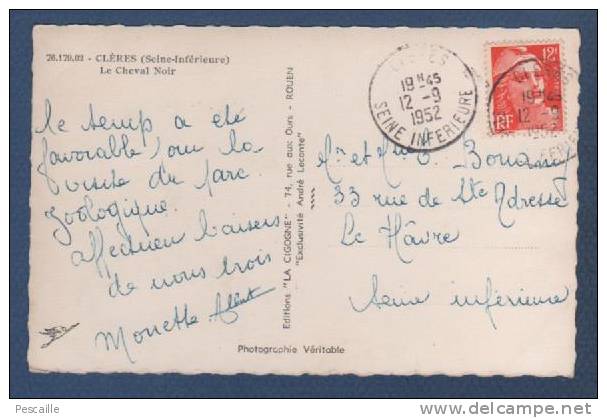 76.179.02 - CLÈRES (Seine-Inférieure)
Le Cheval Noir
le temp a été
favorable pour la
visite du parc
zoologique.
affectueux baisers
de nous trois
Monette
Editions "LA CIGOGNE" - 74, rue aux Ours - ROUEN
"Exclusivité André Leconte"
Photographie Véritable
CLÈRES
19H45
12 -9
1952
SEINE INFERIEURE
12F
RF
12 -9
1952
Mr et Mme
33 rue de Ste Adresse
Le Hâvre
Seine inférieure
Pescaille
http://www.delcampe.net